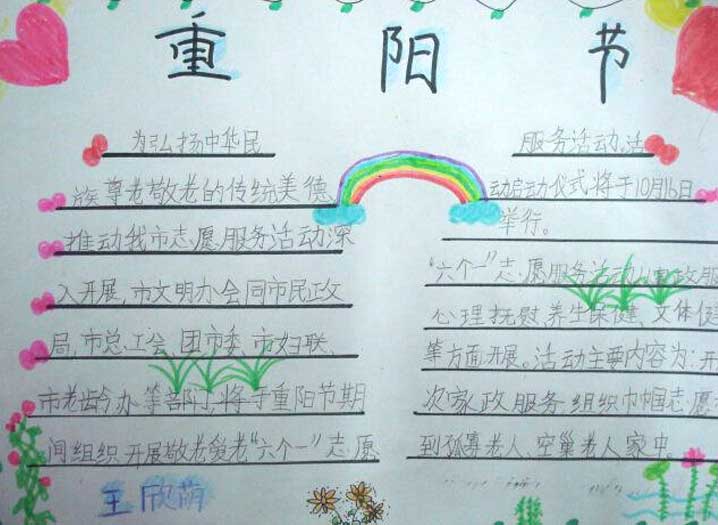 重阳节
为弘扬中华民
族尊老敬老的传统美德、
推动我市志愿服务活动深
入开展,市文明办会同市民政
局、市总工会、团市委、市妇联、
市老龄办等部门,将于重阳节期
间组织开展敬老爱老“六个一”志愿
服务活动、活
动启动仪式将于10月16日
举行。
“六个一”志愿服务活动以家政服
心理抚慰、养生保健、文体健
等方面开展。活动主要内容为:开
次家政服务组织巾帼志愿
到孤寡老人、空巢老人家中。
王欣萌